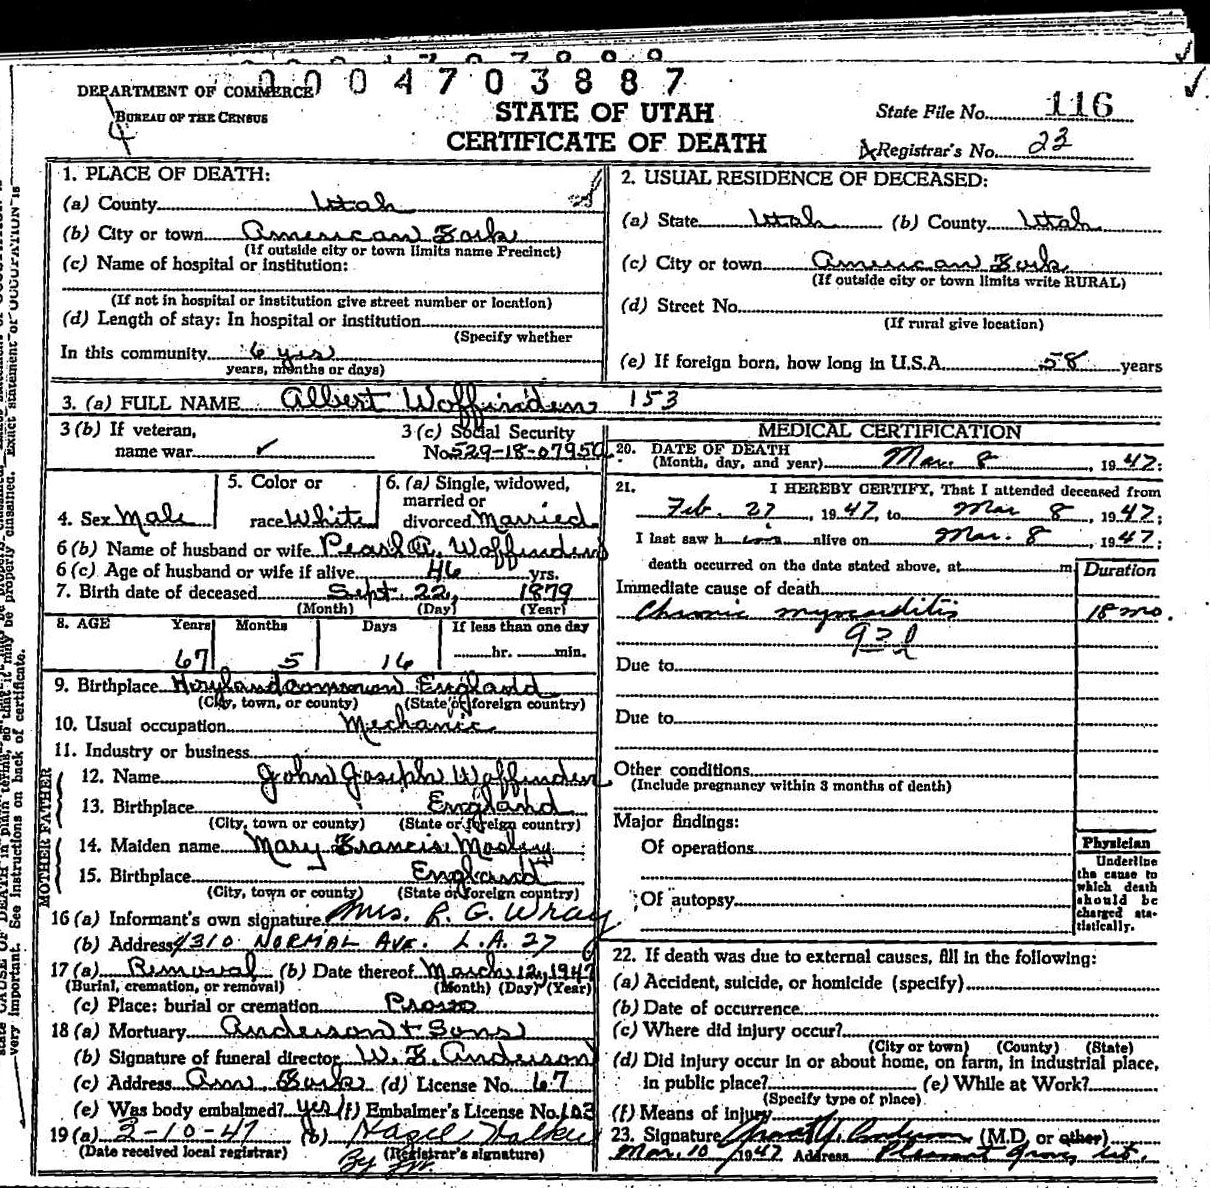 0004703887
DEPARTMENT OF COMMERCE
BUREAU OF THE CENSUS
4
STATE OF UTAH
CERTIFICATE OF DEATH
State File No. 116
Registrar's No. 23
1. PLACE OF DEATH:
(a) County Utah
(b) City or town American Fork
(If outside city or town limits name Precinct)
(c) Name of hospital or institution:
(If not in hospital or institution give street number or location)
(d) Length of stay: In hospital or institution
(Specify whether
In this community 6 yrs
years, months or days)
2. USUAL RESIDENCE OF DECEASED:
(a) State Utah (b) County Utah
(c) City or town American Fork
(If outside city or town limits write RURAL)
(d) Street No.
(If rural give location)
(e) If foreign born, how long in U.S.A. 58 years
3. (a) FULL NAME Albert Woffinden 153
3 (b) If veteran, name war ✓
3 (c) Social Security No. 529-18-07950
4. Sex Male
5. Color or race White
6. (a) Single, widowed, married or divorced Married
6 (b) Name of husband or wife Pearl A. Woffinden
6 (c) Age of husband or wife if alive 46 yrs.
7. Birth date of deceased Sept. 22, 1879
(Month) (Day) (Year)
8. AGE Years Months Days If less than one day
67 5 16 hr. min.
9. Birthplace England
(City, town, or county) (State or foreign country)
10. Usual occupation Mechanic
11. Industry or business
FATHER
12. Name John Joseph Woffinden
13. Birthplace England
(City, town or county) (State or foreign country)
MOTHER
14. Maiden name Mary Francis
15. Birthplace England
(City, town or county) (State or foreign country)
16 (a) Informant's own signature Mrs. R. G. Wray
(b) Address 4310 NORMAL AVE. L.A. 27
17 (a) Removal (b) Date thereof March 12, 1947
(Burial, cremation, or removal) (Month) (Day) (Year)
(c) Place: burial or cremation Provo
18 (a) Mortuary Anderson & Sons
(b) Signature of funeral director W. E. Anderson
(c) Address Am. Fork (d) License No. 67
(e) Was body embalmed? yes (f) Embalmer's License No. 103
19 (a) 3-10-47 (b) Hazel Walker
(Date received local registrar) (Registrar's signature)
By
MEDICAL CERTIFICATION
20. DATE OF DEATH
(Month, day, and year) Mar. 8, 1947;
21. I HEREBY CERTIFY, That I attended deceased from
Feb. 27, 1947, to Mar 8, 1947;
I last saw him alive on Mar. 8, 1947;
death occurred on the date stated above, at m.
Duration
Immediate cause of death
Chronic myocarditis 18 mo.
Due to
Due to
Other conditions
(Include pregnancy within 3 months of death)
Major findings:
Of operations
Of autopsy
Physician
Underline
the cause to
which death
should be
charged sta-
tistically.
22. If death was due to external causes, fill in the following:
(a) Accident, suicide, or homicide (specify)
(b) Date of occurrence
(c) Where did injury occur?
(City or town) (County) (State)
(d) Did injury occur in or about home, on farm, in industrial place,
in public place? (e) While at Work?
(Specify type of place)
(f) Means of injury
23. Signature (M.D. or other)
Mar. 10, 1947 Address Pleasant Grove, Ut.